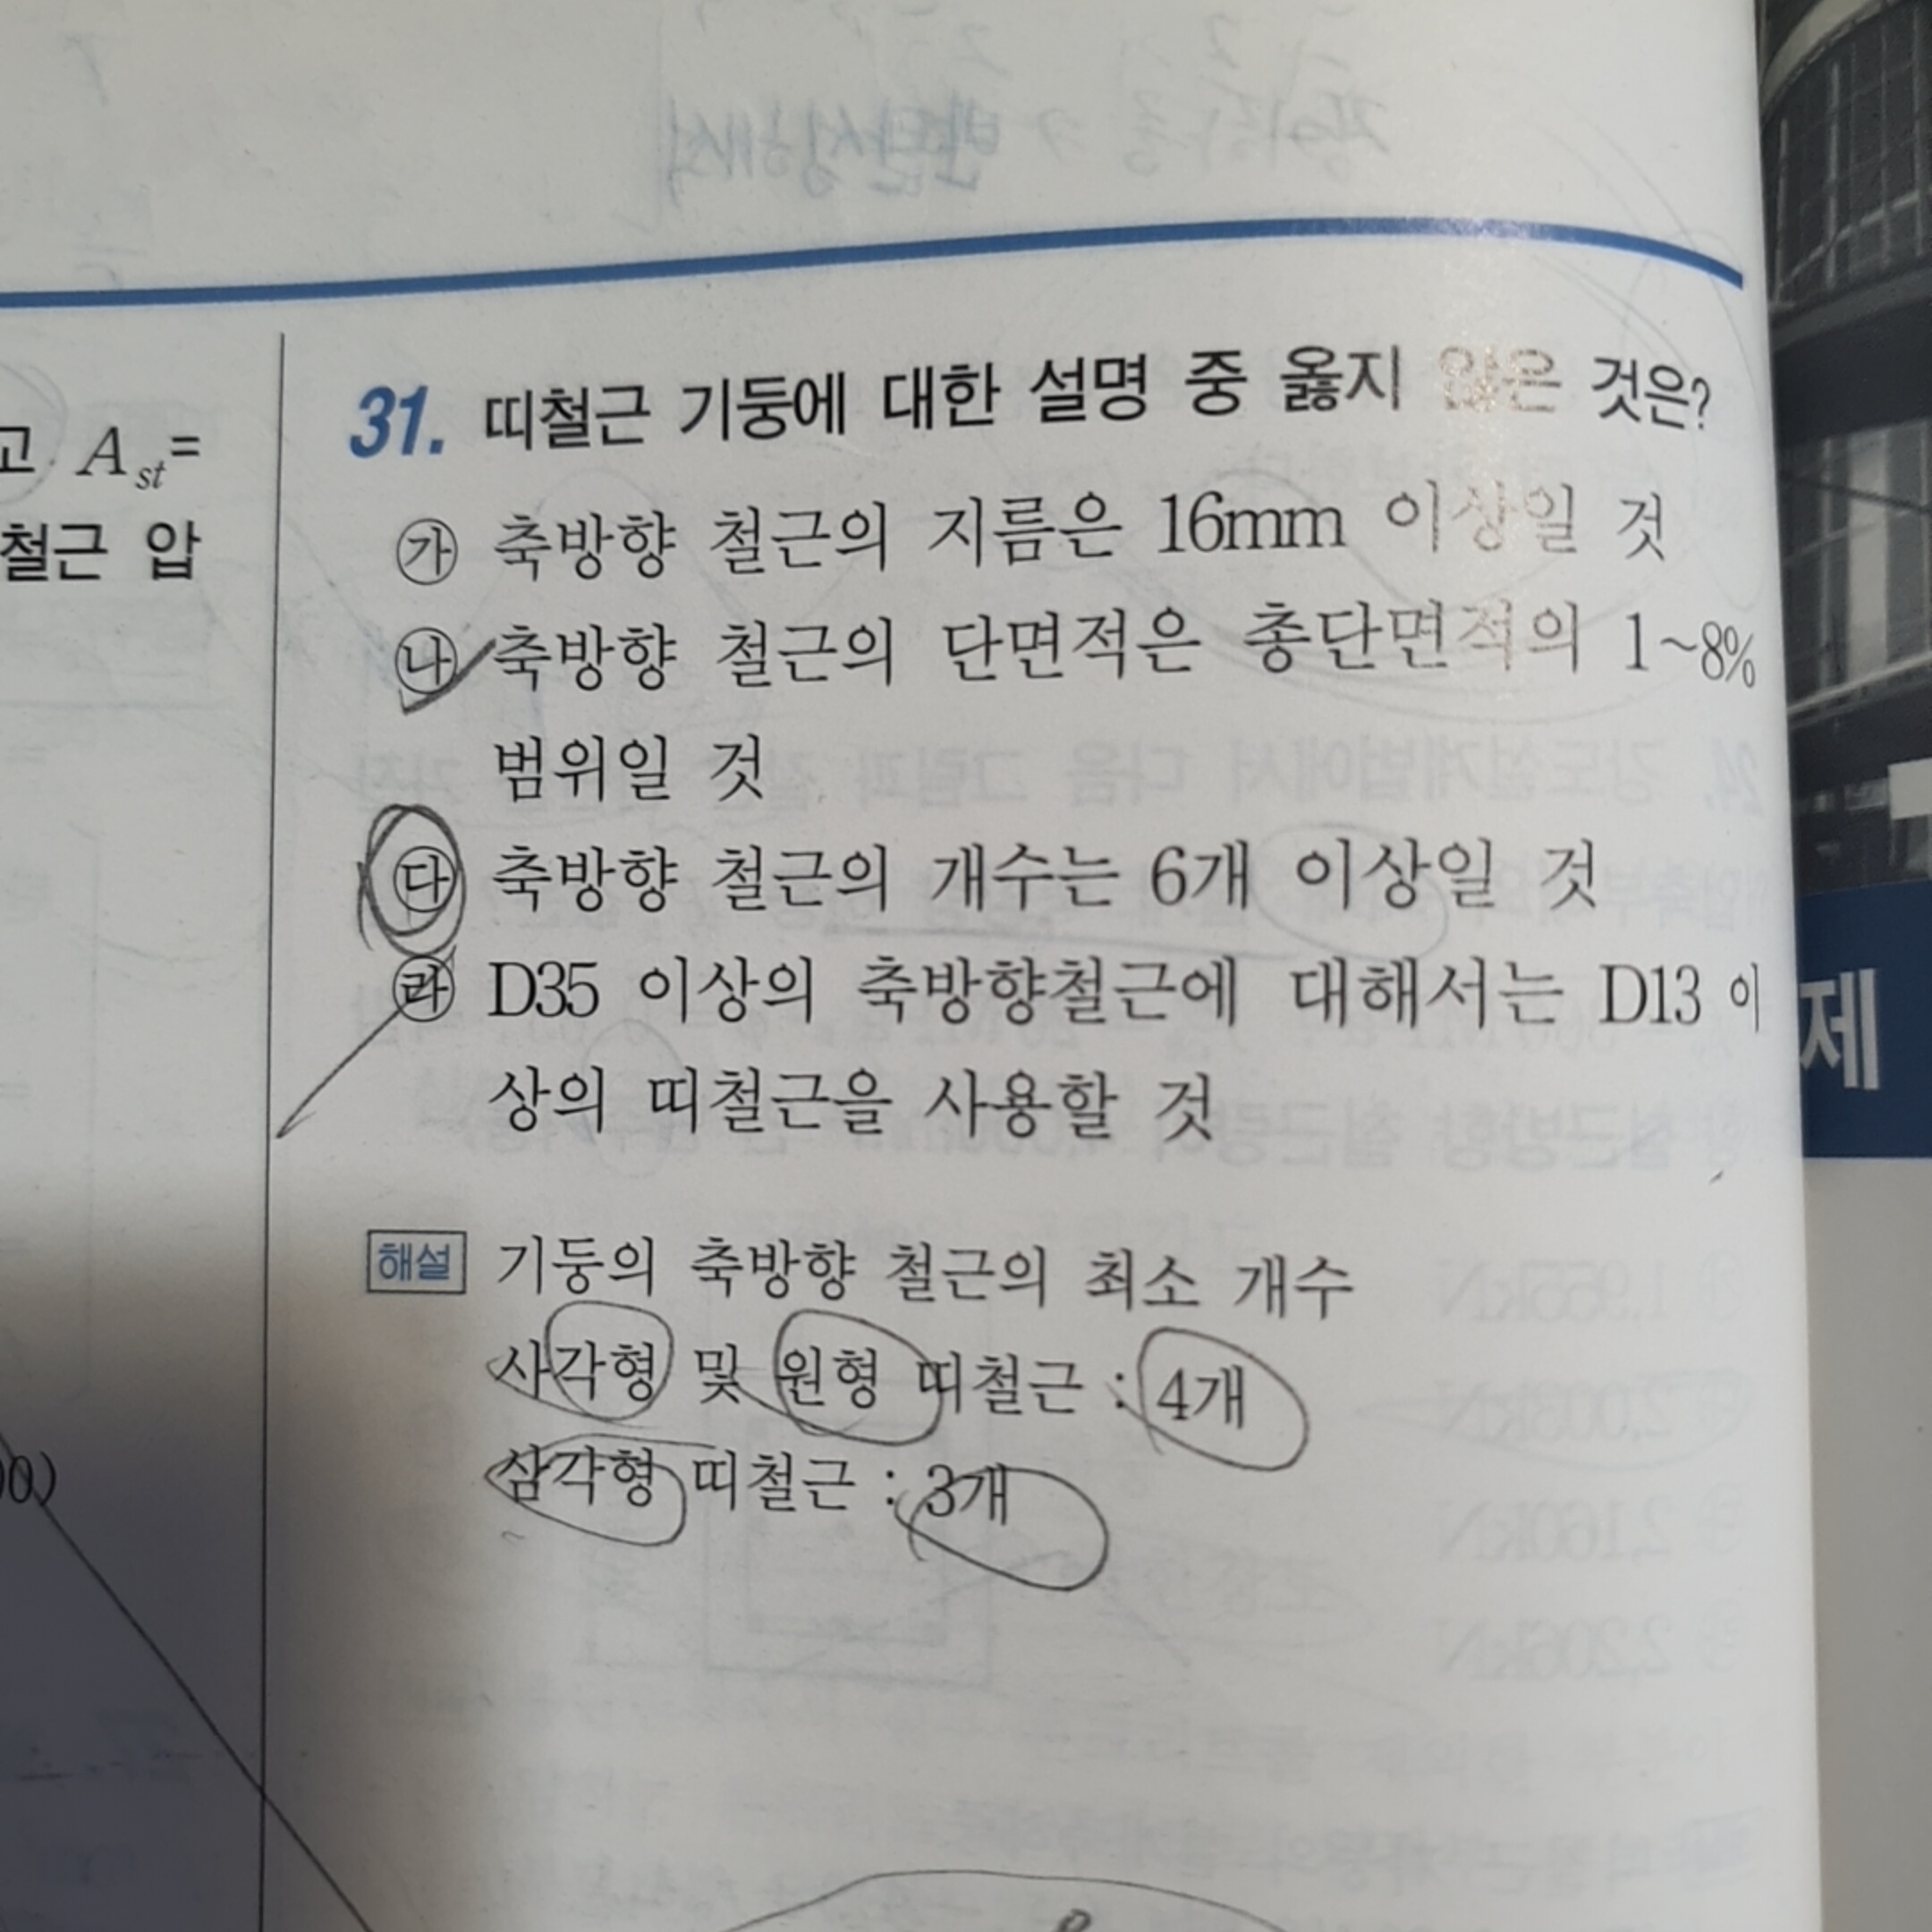 고 A_st=
철근 압
00)
31. 띠철근 기둥에 대한 설명 중 옳지 않은 것은?
㉮ 축방향 철근의 지름은 16mm 이상일 것
㉯ 축방향 철근의 단면적은 총단면적의 1~8%
범위일 것
㉰ 축방향 철근의 개수는 6개 이상일 것
㉱ D35 이상의 축방향철근에 대해서는 D13 이
상의 띠철근을 사용할 것
해설 기둥의 축방향 철근의 최소 개수
사각형 및 원형 띠철근 : 4개
삼각형 띠철근 : 3개
제